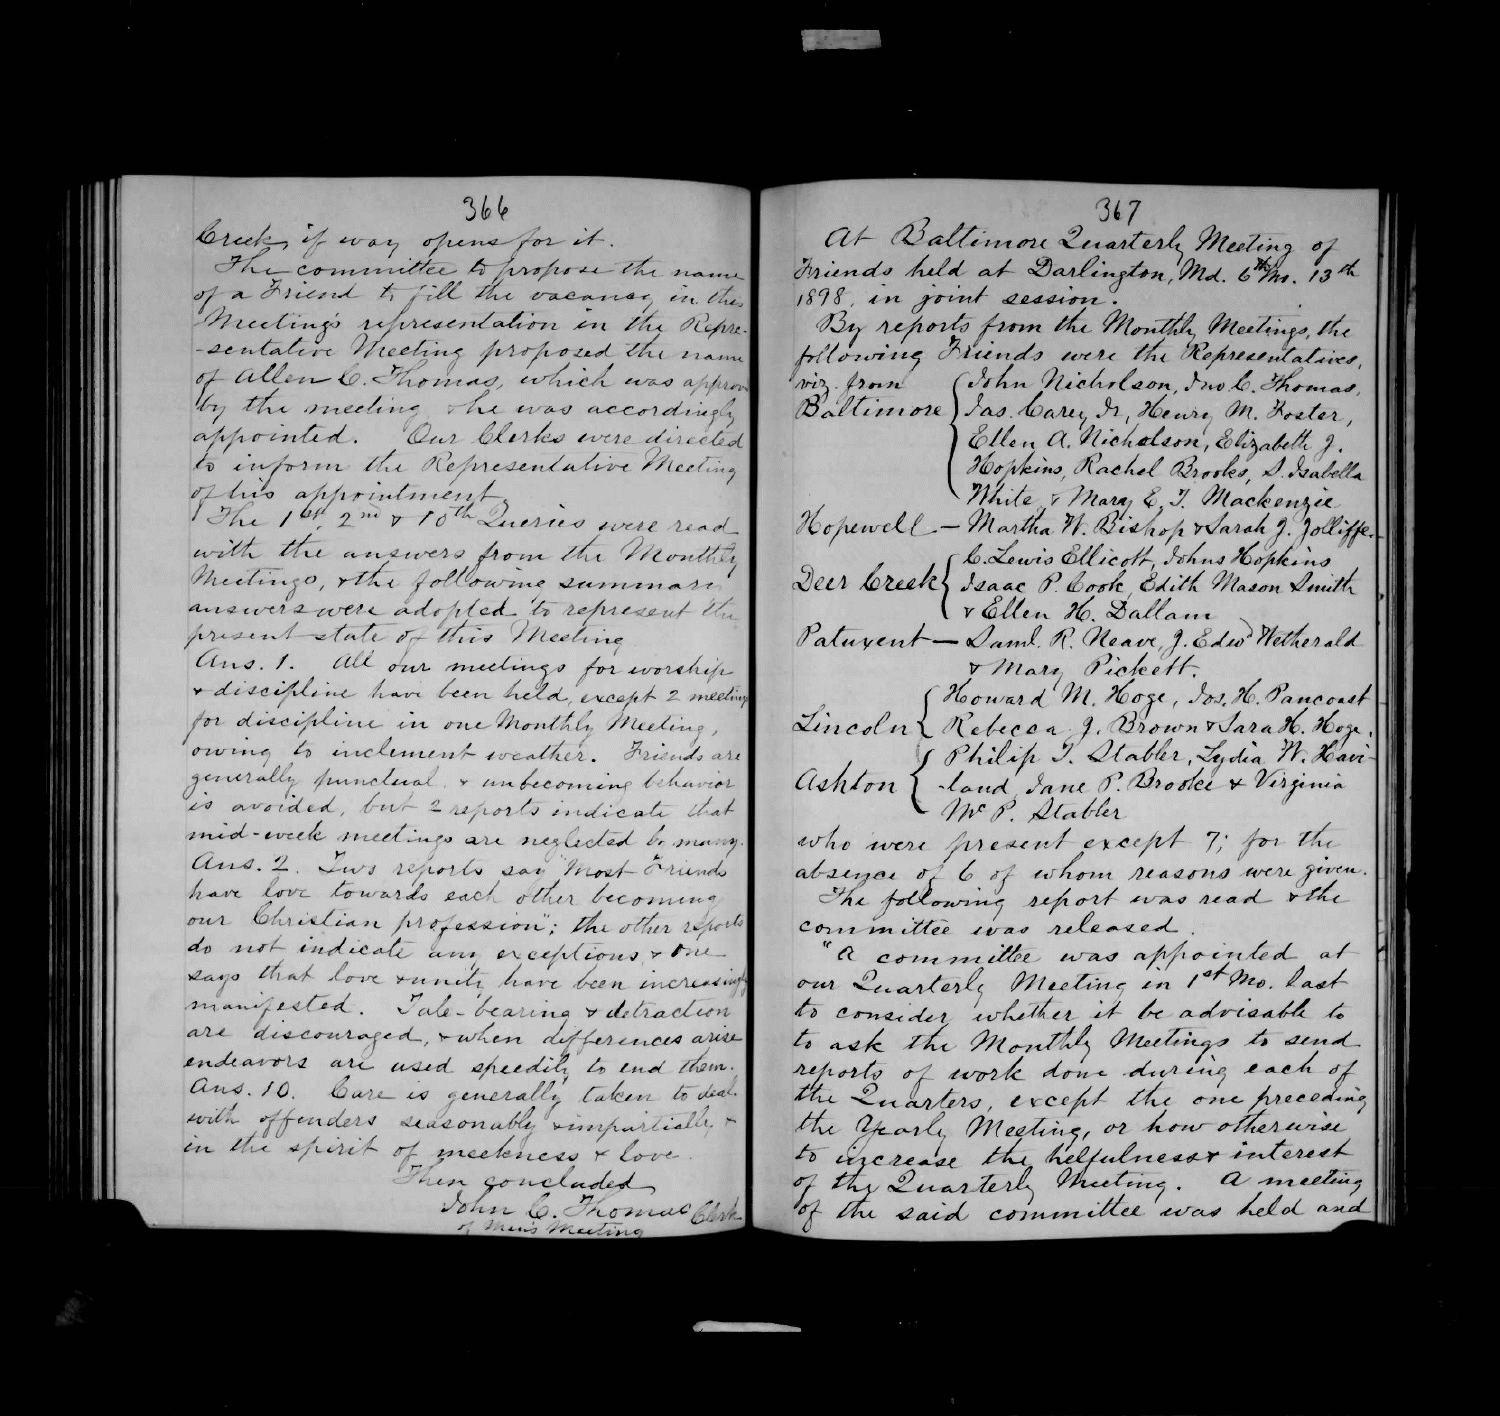 366
Creek, if way opens for it.
The committee to propose the name
of a Friend to fill the vacancy in this
Meeting's representation in the Repre-
-sentative Meeting proposed the name
of Allen C. Thomas, which was approv
by the meeting, & he was accordingly
appointed. Our Clerks were directed
to inform the Representative Meeting
of his appointment.
The 1st, 2nd & 10th Queries were read
with the answers from the Monthly
Meetings, & the following summary
answers were adopted to represent the
present state of this Meeting
Ans. 1. All our meetings for worship
& discipline have been held, except 2 meetings
for discipline in one Monthly Meeting,
owing to inclement weather. Friends are
generally punctual, & unbecoming behavior
is avoided, but 2 reports indicate that
mid-week meetings are neglected by many.
Ans. 2. Two reports say "Most Friends
have love towards each other becoming
our Christian profession"; the other reports
do not indicate any exceptions, & one
says that love & unity have been increasingly
manifested. Tale-bearing & detraction
are discouraged, & when differences arise
endeavors are used speedily to end them.
Ans. 10. Care is generally taken to deal
with offenders seasonably & impartially &
in the spirit of meekness & love.
Then concluded
John C. Thomas Clerk
of Men's Meeting
367
At Baltimore Quarterly Meeting of
Friends held at Darlington, Md. 6th Mo. 13th
1898, in joint session.
By reports from the Monthly Meetings, the
following Friends were the Representatives,
viz. from John Nicholson, Jno C. Thomas,
Baltimore Jas. Carey Jr, Henry M. Foster,
Ellen A. Nicholson, Elizabeth J.
Hopkins, Rachel Brooks, S. Isabella
White, & Mary E. T. Mackenzie
Hopewell — Martha W. Bishop & Sarah J. Jolliffe.
C. Lewis Ellicott, Johns Hopkins
Deer Creek Isaac P. Cook, Edith Mason Smith
& Ellen H. Dallam
Patuxent — Saml. R. Neave, J. Edwd Wetherald
& Mary Pickett.
Howard M. Hoge, Jos. H. Pancoast
Lincoln Rebecca J. Brown & Sara H. Hoge.
Philip T. Stabler, Lydia W. Havi-
Ashton -land, Jane P. Brooke & Virginia
Mc P. Stabler
who were present except 7; for the
absence of 6 of whom reasons were given.
The following report was read & the
committee was released.
"A committee was appointed at
our Quarterly Meeting in 1st Mo. last
to consider whether it be advisable to
to ask the Monthly Meetings to send
reports of work done during each of
the Quarters, except the one preceding
the Yearly Meeting, or how otherwise
to increase the helfulness & interest
of the Quarterly Meeting. A meeting
of the said committee was held and